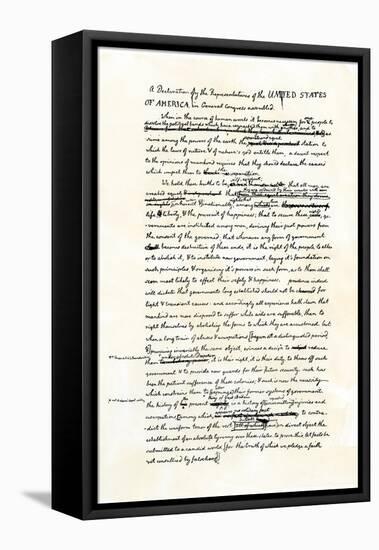 A Declaration by the Representatives of the UNITED STATES
OF AMERICA, in General Congress assembled.
When in the course of human events it becomes necessary for people to
dissolve the political bands which have connected them with another, and to
-sume among the powers of the earth the station to
which the laws of nature & of nature's god entitle them, a decent respect
to the opinions of mankind requires that they should declare the causes
which impel them to the separation.
We hold these truths to be that all men are
created equal
life, & liberty, & the pursuit of happiness; that to secure these rights, go-
-vernments are instituted among men, deriving their just powers from
the consent of the governed; that whenever any form of government
becomes destructive of these ends, it is the right of the people to alter
or to abolish it, & to institute new government, laying it's foundation on
such principles & organising it's powers in such form, as to them shall
seem most likely to effect their safety & happiness. prudence indeed
will dictate that governments long established should not be changed for
light & transient causes: and accordingly all experience hath shewn that
mankind are more disposed to suffer while evils are sufferable, than to
right themselves by abolishing the forms to which they are accustomed. but
when a long train of abuses & usurpations [begun at a distinguished period,
& pursuing invariably the same object, evinces a design to reduce
them it is their right, it is their duty, to throw off such
government & to provide new guards for their future security. such has
been the patient sufferance of these colonies; & such is now the necessity
which constrains them to their former systems of government.
the history of present is a history of injuries and
usurpations, [among which
-dict the uniform tenor of the rest, all of which have in direct object the
establishment of an absolute tyranny over these states. to prove this let facts be
submitted to a candid world, [for the truth of which we pledge a faith
yet unsullied by falsehood]